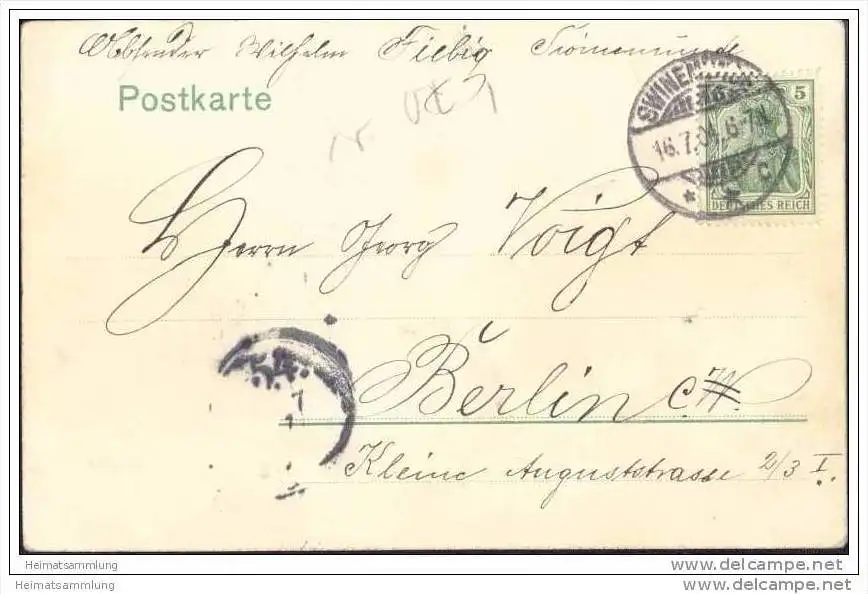 Absender Wilhelm Fiebig Swinemünde
Postkarte
SWINEMÜNDE
16.7.04. 6-7N.
C
5
DEUTSCHES REICH
Herrn Georg Voigt
Berlin C.
Kleine Auguststrasse 2/3 I.
Heimatsammlung
Heimatsammlung
www.delcampe.net
www.delcampe.net